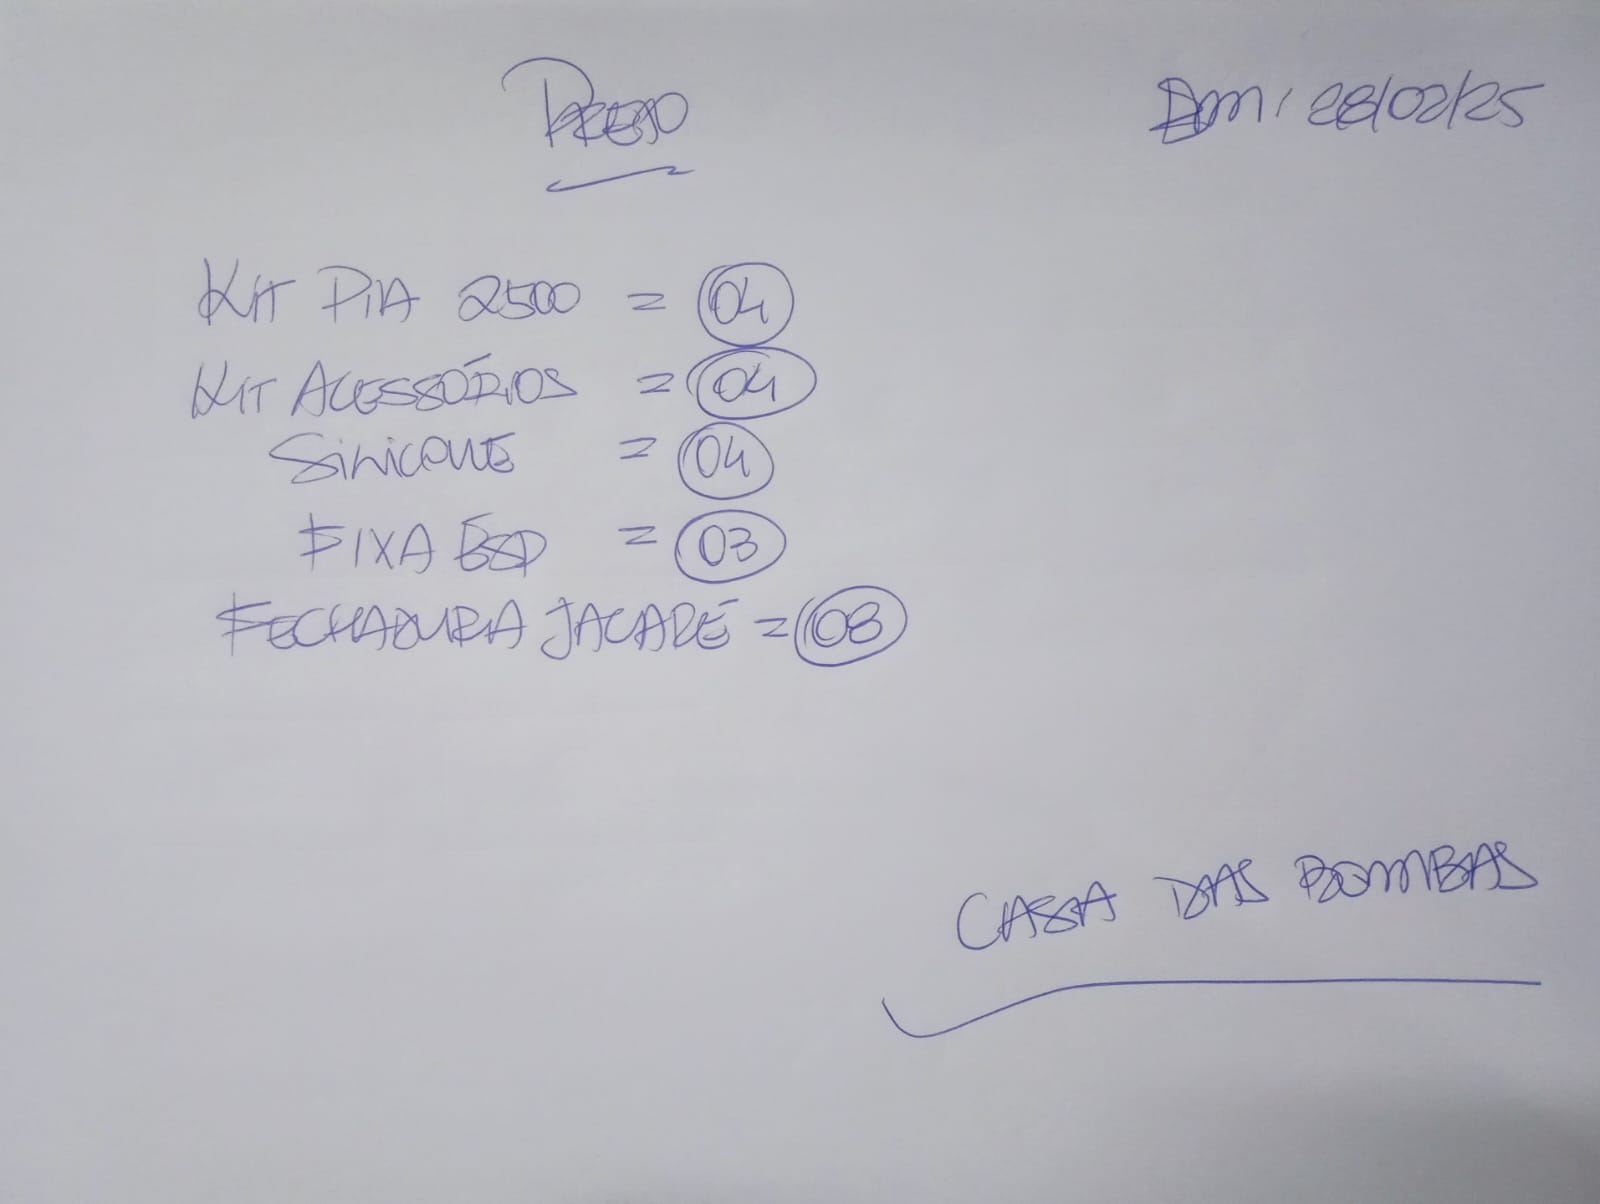 Em: 28/02/25
KIT PIA 2500 = 04
KIT ACESSÓRIOS = 04
SILICONE = 04
FIXA ESP = 03
FECHADURA JACARÉ = 08
CASA DAS BOMBAS